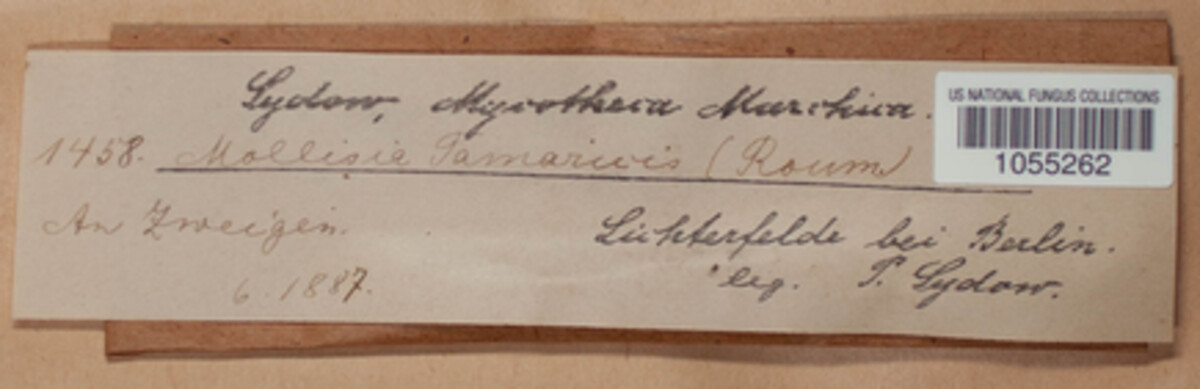 Sydow, Mycotheca Marchica.
US NATIONAL FUNGUS COLLECTIONS
1055262
1458. Mollisia Tamaricis (Roum)
An Zweigen.
Lichterfelde bei Berlin.
6. 1887.
leg. P. Sydow.